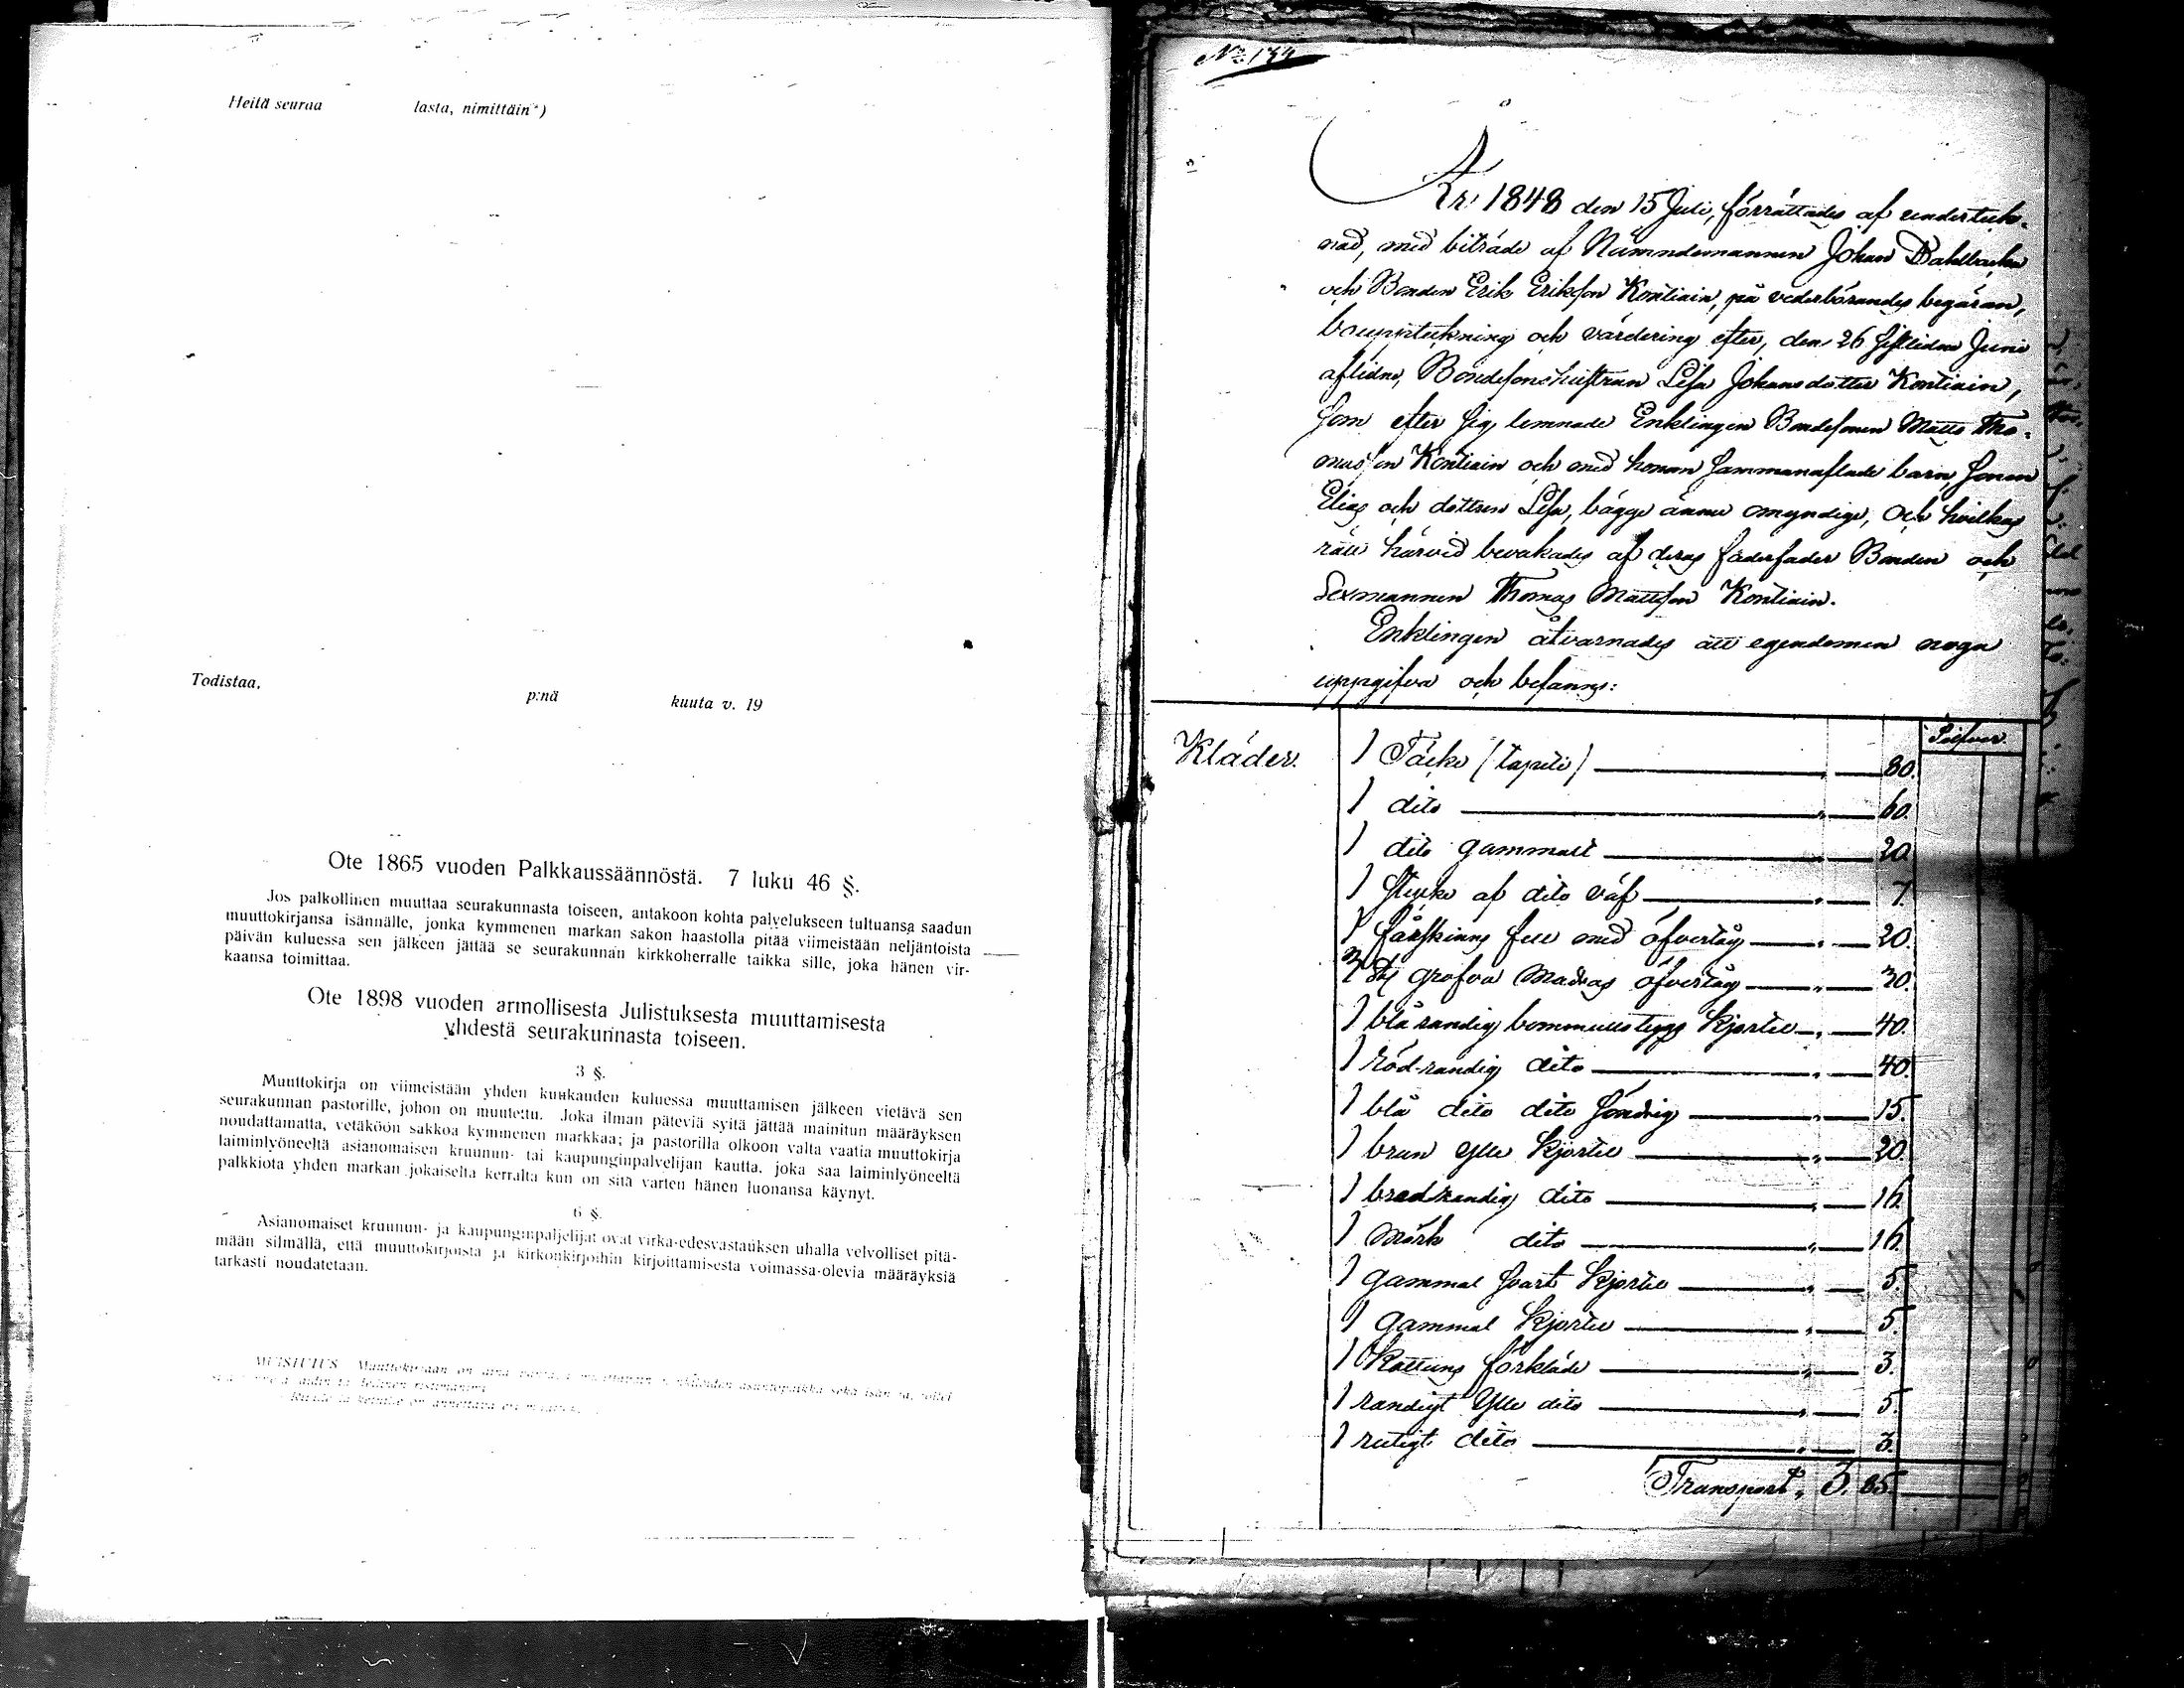 Heitä seuraa lasta, nimittäin*)
Todistaa,
p:nä kuuta v. 19
Ote 1865 vuoden Palkkaussäännöstä. 7 luku 46 §.
Jos palkollinen muuttaa seurakunnasta toiseen, antakoon kohta palvelukseen tultuansa saadun
muuttokirjansa isännälle, jonka kymmenen markan sakon haastolla pitää viimeistään neljäntoista
päivän kuluessa sen jälkeen jättää se seurakunnan kirkkoherralle taikka sille, joka hänen vir-
kaansa toimittaa.
Ote 1898 vuoden armollisesta Julistuksesta muuttamisesta
yhdestä seurakunnasta toiseen.
3 §.
Muuttokirja on viimeistään yhden kuukauden kuluessa muuttamisen jälkeen vietävä sen
seurakunnan pastorille, johon on muutettu. Joka ilman päteviä syitä jättää mainitun määräyksen
noudattamatta, vetäköön sakkoa kymmenen markkaa; ja pastorilla olkoon valta vaatia muuttokirja
laiminlyöneeltä asianomaisen kruunun- tai kaupunginpalvelijan kautta, joka saa laiminlyöneeltä
palkkiota yhden markan jokaiselta kerralta kun on sitä varten hänen luonansa käynyt.
6 §.
Asianomaiset kruunun- ja kaupunginpaljelijat ovat virka-edesvastauksen uhalla velvolliset pitä-
mään silmällä, että muuttokirjoista ja kirkonkirjoihin kirjoittamisesta voimassa-olevia määräyksiä
tarkasti noudatetaan.
MUISTUTUS. Muuttokirjaan on aina
År 1848 den 15 Juli, förrättades af underteck-
nad, med biträde af Nämndemannen Johan Dahlbacka
och Bonden Erik Erikson Kontiain, på vederbörandes begäran,
bouppteckning och värdering efter, den 26 sistlidne Juni
aflidne, Bondesonshustrun Lisa Johansdotter Kontiain,
som efter sig lemnade Enklingen Bondesonen Matts Tho-
masson Kontiain och med honom sammanaflade barn, sonen
Elias och dottren Lisa, bägge ännu omyndige, och hvilkas
rätt härvid bevakades af deras faderfader Bonden och
Sexmannen Thomas Mattson Kontiain.
Enklingen åtvarnades att egendomen noga
uppgifva och befanns:
Silfver.
Kläder. 1 Täcke (tapeti) " 80.
1 dito " 60.
1 dito gammalt " 20
1 stycke af dito väf " 7.
1 fårskinns fell med öfvertåg " 20.
st grofva Madras öfvertåg " 30.
1 blårandig bommullstygs Kjortel " 40.
1 röd-randig dito " 40.
1 blå dito dito söndrig " 15.
1 brun ylle Kjortel " 20.
1 bredrandig dito " 16.
1 mörk dito " 16.
1 gammal svart Kjortel " 5.
1 gammal Kjortel " 5.
1 Kattuns förkläde " 3.
1 randigt Ylle dito " 5.
1 rutigt dito " 3.
Transport " 3. 85.